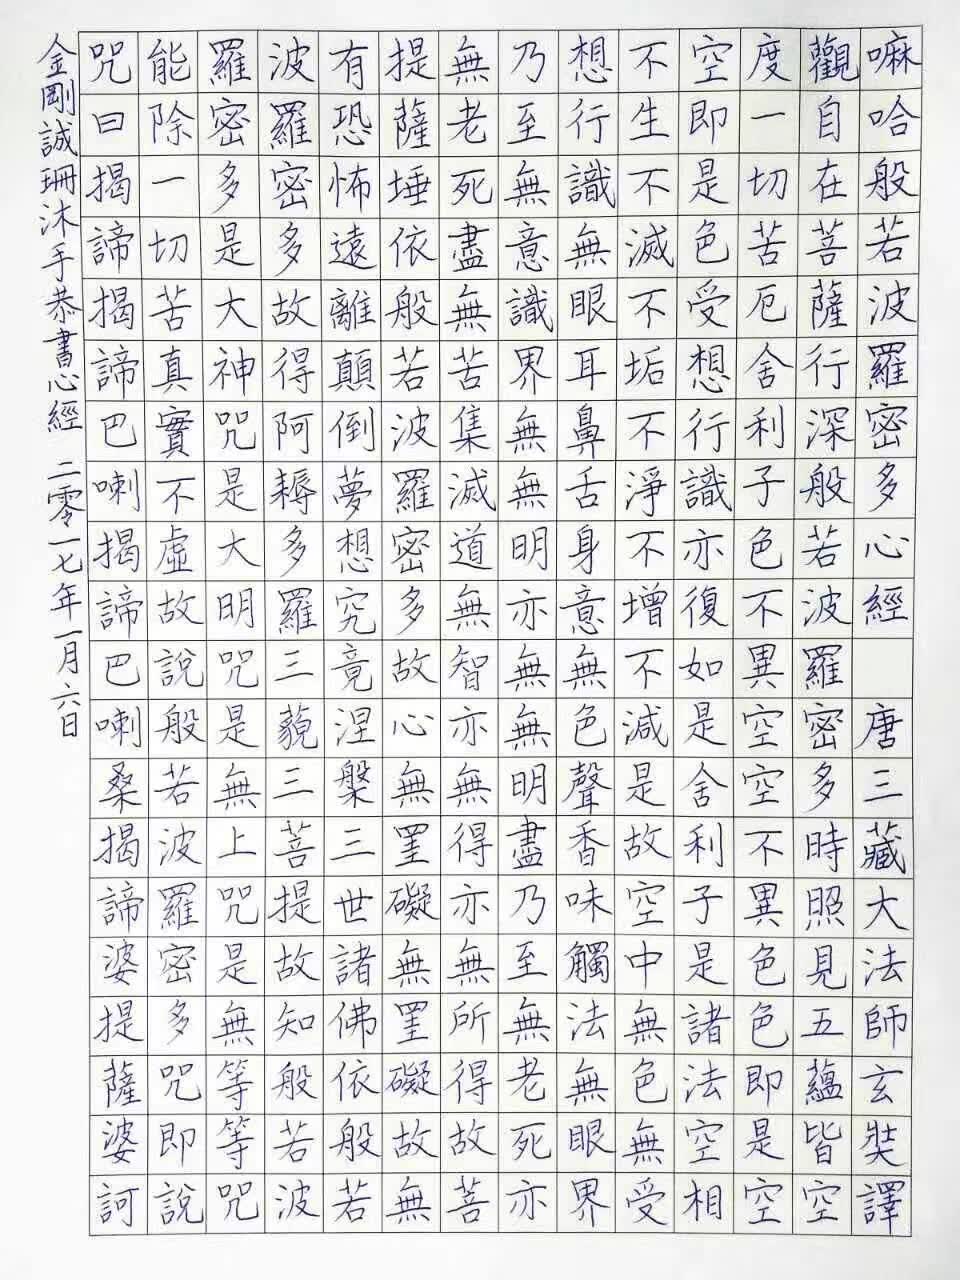 嘛哈般若波羅密多心經 唐三藏大法師玄奘譯
觀自在菩薩行深般若波羅密多時照見五蘊皆空
度一切苦厄舍利子色不異空空不異色色即是空
空即是色受想行識亦復如是舍利子是諸法空相
不生不滅不垢不淨不增不減是故空中無色無受
想行識無眼耳鼻舌身意無色聲香味觸法無眼界
乃至無意識界無無明亦無無明盡乃至無老死亦
無老死盡無苦集滅道無智亦無得亦無所得故菩
提薩埵依般若波羅密多故心無罣礙無罣礙故無
有恐怖遠離顛倒夢想究竟涅槃三世諸佛依般若
波羅密多故得阿耨多羅三藐三菩提故知般若波
羅密多是大神咒是大明咒是無上咒是無等等咒
能除一切苦真實不虛故說般若波羅密多咒即說
咒曰揭諦揭諦巴喇揭諦巴喇桑揭諦婆提薩婆訶
金剛誠珊沐手恭書心經 二零一七年一月六日